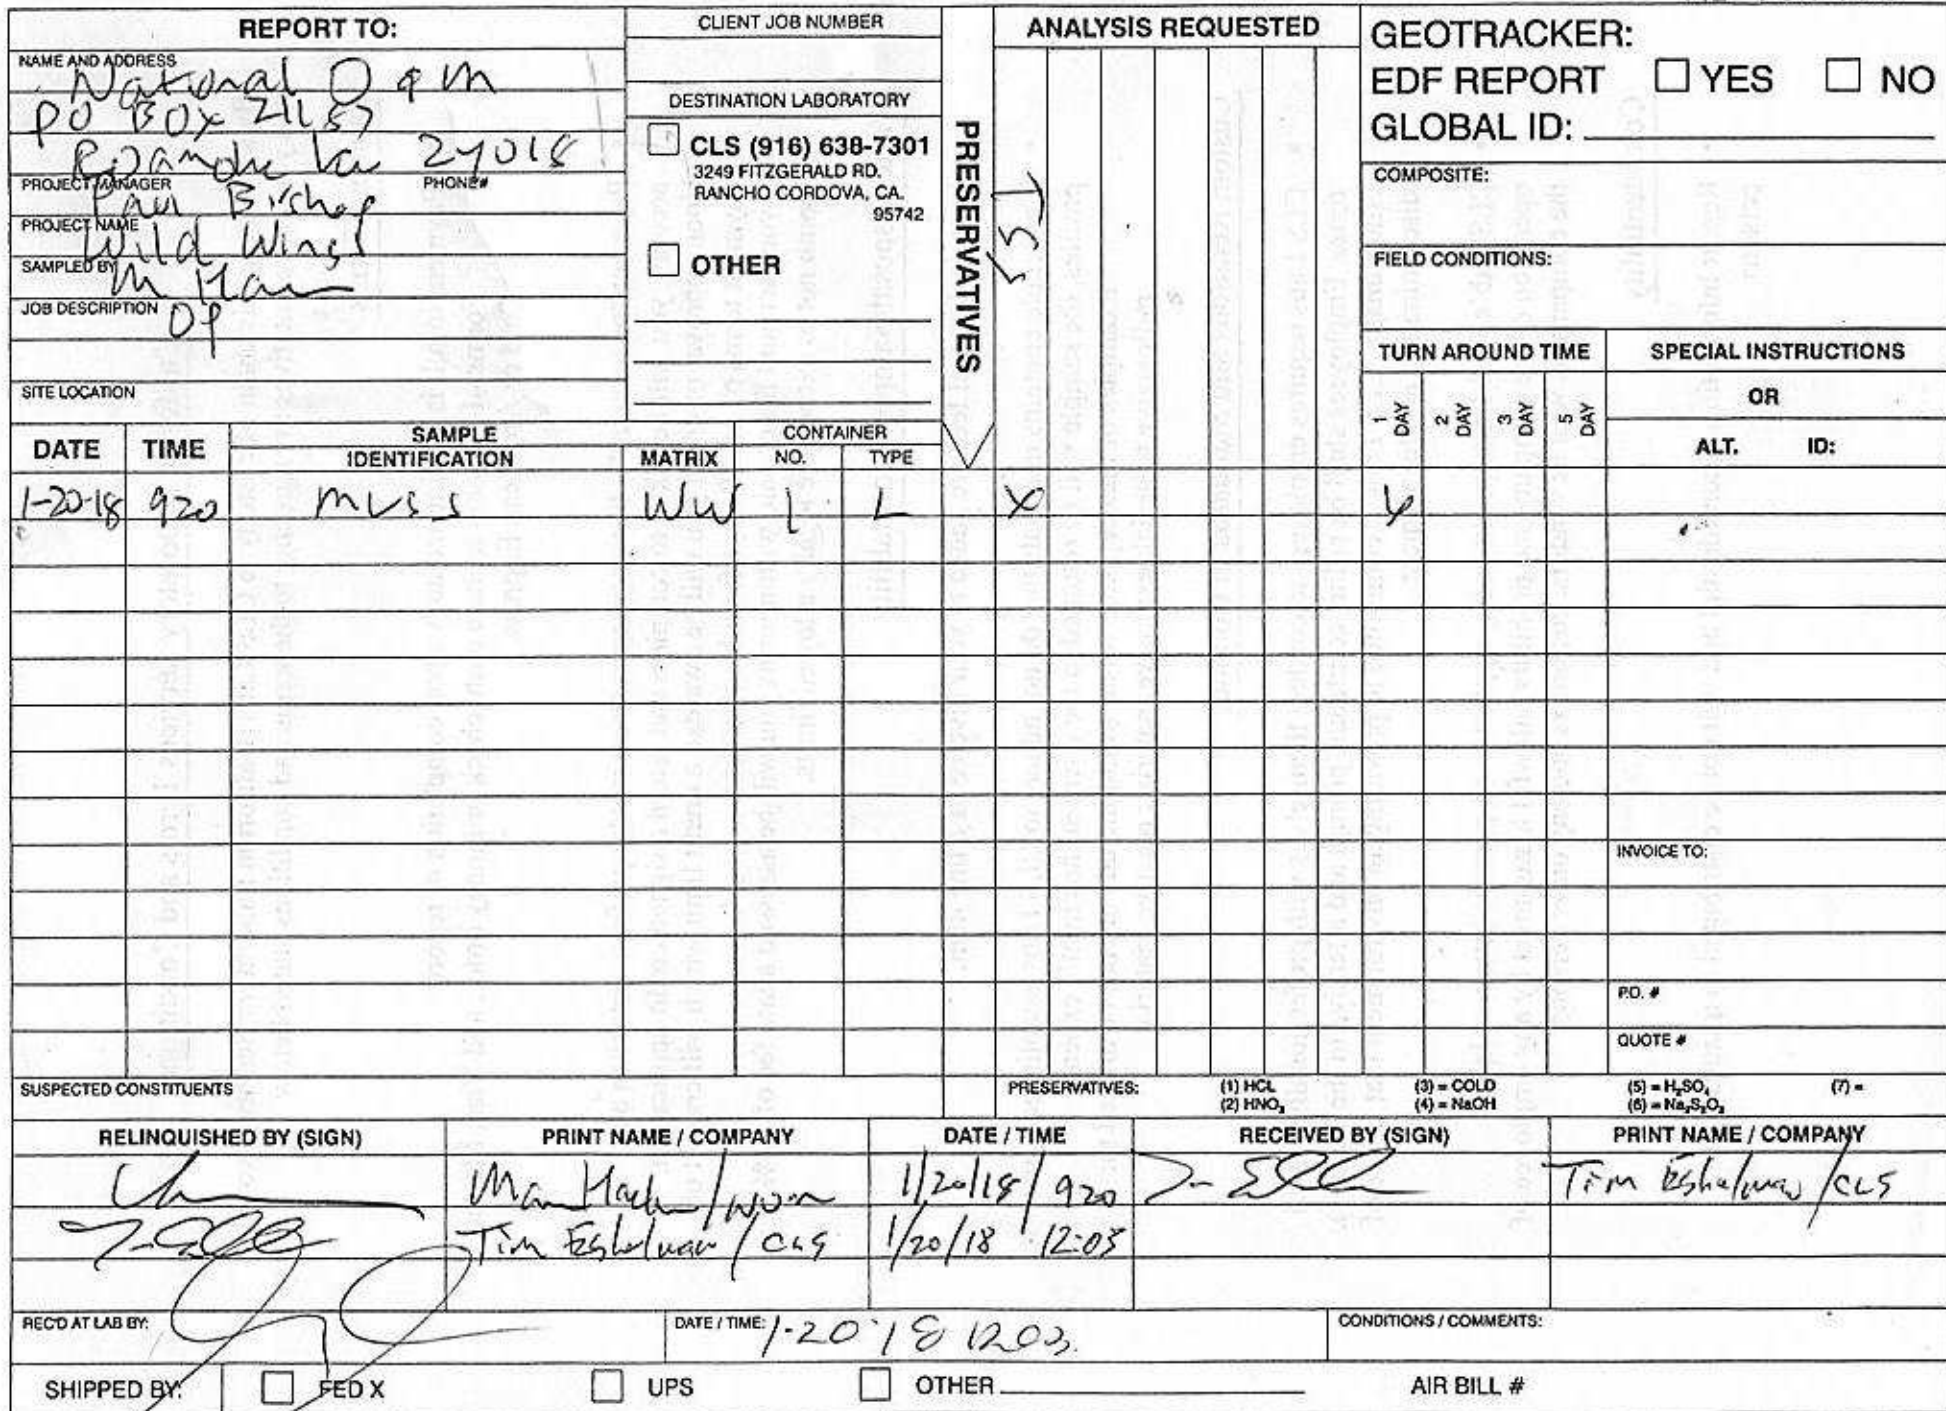 REPORT TO:
NAME AND ADDRESS
National O & M
PO BOX 21153
24018
PROJECT MANAGER PHONE#
Paul Bishop
PROJECT NAME
Wild Wings
SAMPLED BY
M
JOB DESCRIPTION OP
SITE LOCATION
CLIENT JOB NUMBER
DESTINATION LABORATORY
CLS (916) 638-7301
3249 FITZGERALD RD.
RANCHO CORDOVA, CA.
95742
OTHER
PRESERVATIVES
ANALYSIS REQUESTED
TSS
GEOTRACKER:
EDF REPORT YES NO
GLOBAL ID:
COMPOSITE:
FIELD CONDITIONS:
TURN AROUND TIME
1 DAY
2 DAY
3 DAY
5 DAY
SPECIAL INSTRUCTIONS
OR
ALT. ID:
DATE TIME SAMPLE IDENTIFICATION MATRIX CONTAINER NO. TYPE
1-20-18 920 WW 1 L X X
INVOICE TO:
P.O. #
QUOTE #
SUSPECTED CONSTITUENTS
PRESERVATIVES: (1) HCL (3) = COLD (5) = H₂SO₄ (7) =
(2) HNO₃ (4) = NaOH (6) = Na₂S₂O₃
RELINQUISHED BY (SIGN) PRINT NAME / COMPANY DATE / TIME RECEIVED BY (SIGN) PRINT NAME / COMPANY
1/20/18 / 920 Tim Eshelman / CLS
Tim Eshelman / CLS 1/20/18 12:03
REC'D AT LAB BY: DATE / TIME: 1-20-18 1203 CONDITIONS / COMMENTS:
SHIPPED BY: FED X UPS OTHER AIR BILL #